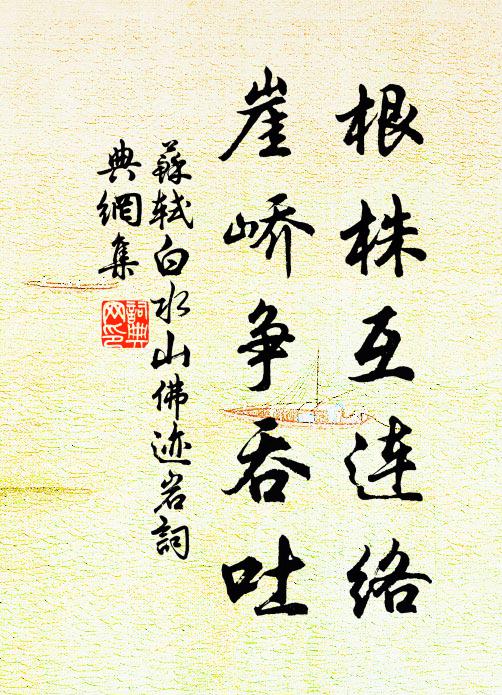 根株互连络
崖峤争吞吐
蘇轼白水山佛迹岩詞
典網集
詞典
网印